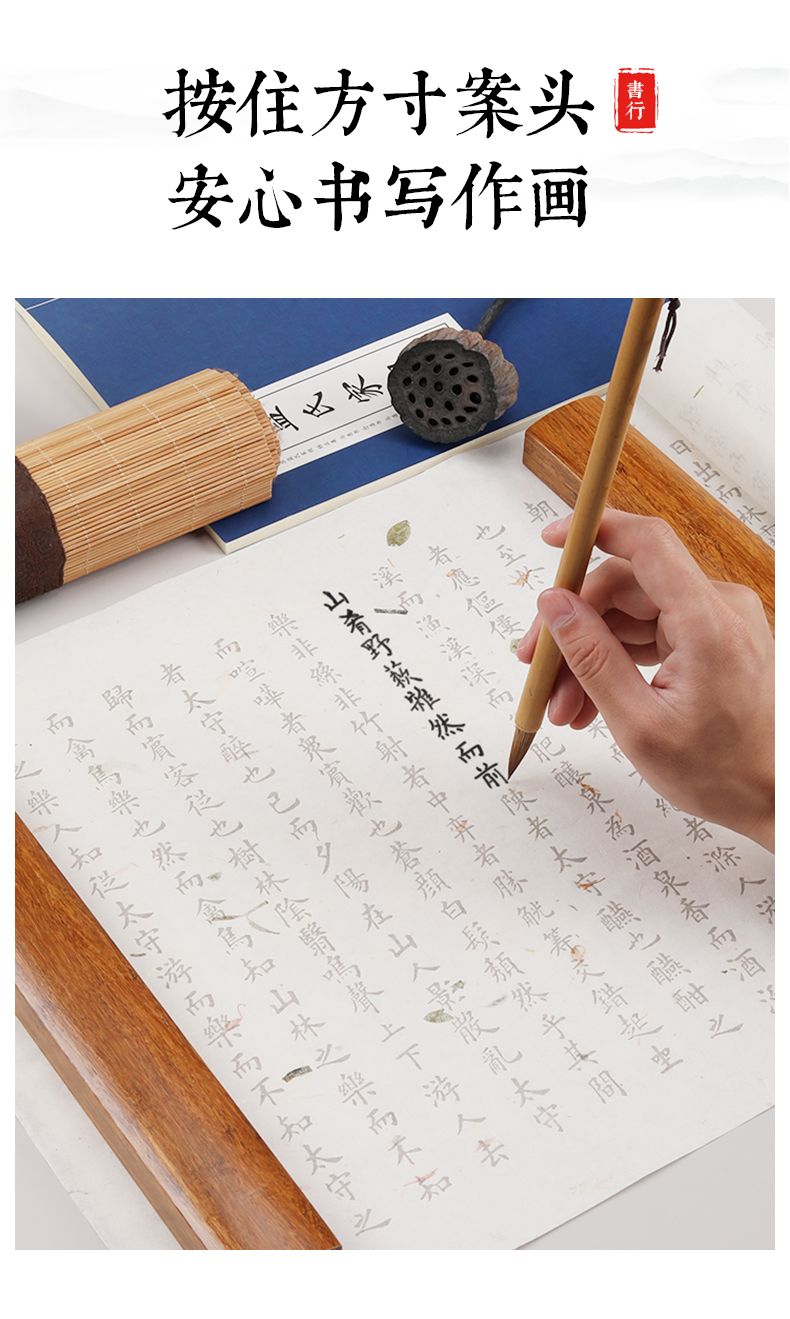 按住方寸案头
安心书写作画
書行
氏家
日出而林
朝
也至於
者應傴僂
絕者滁人游
溪而漁溪深而
肥釀泉為酒泉香而酒
山肴野蔌雜然而前陳者太守醼也醼酣之
樂非絲非竹射者中弈者勝觥籌交錯起坐
而喧嘩者眾賓歡也蒼顏白鬚頹然乎其間
者太守醉也已而夕陽在山人影散亂太守
歸而賓客從也樹林陰翳鳴聲上下游人去
而禽鳥樂也然而禽鳥知山林之樂而不知
之樂人知從太守游而樂而不知太守之